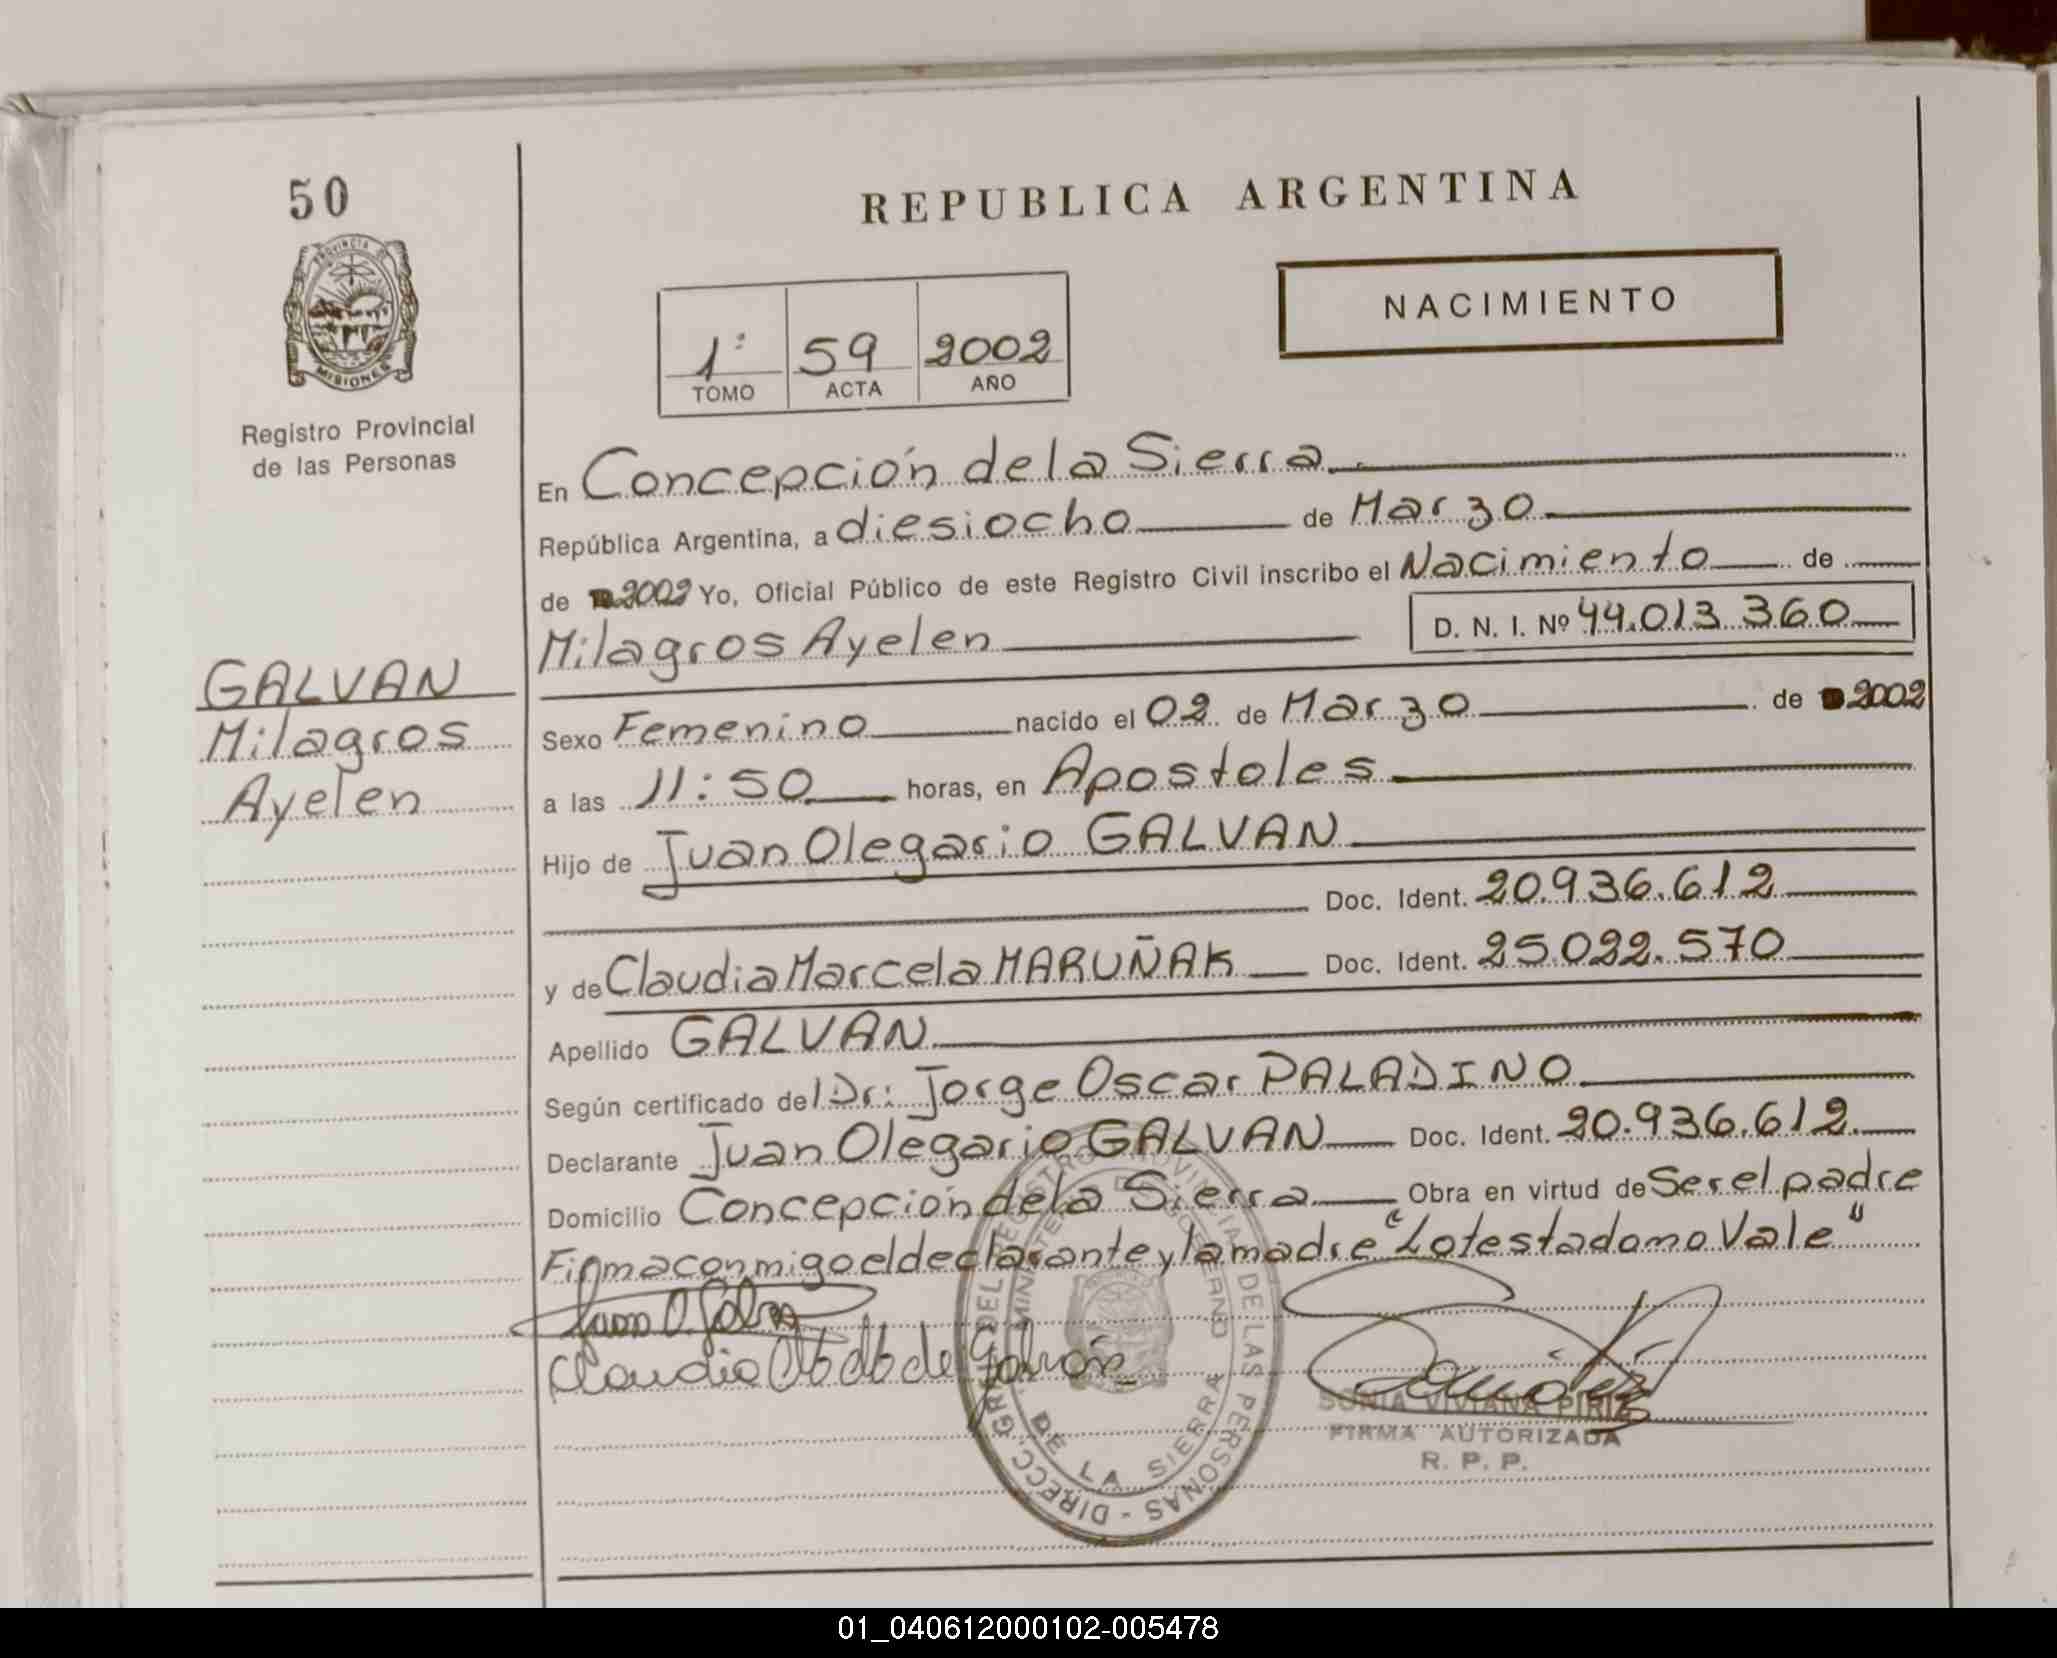 50
PROVINCIA DE
MISIONES
Registro Provincial
de las Personas
GALVAN
Milagros
Ayelen
REPUBLICA ARGENTINA
NACIMIENTO
1º 59 2002
TOMO ACTA AÑO
En Concepción de la Sierra
República Argentina, a diesiocho de Marzo
de 2002 Yo, Oficial Público de este Registro Civil inscribo el Nacimiento de
Milagros Ayelen D. N. I. Nº 44.013.360
Sexo Femenino nacido el 02 de Marzo de 2002
a las 11:50 horas, en Apostoles
Hijo de Juan Olegario GALVAN
Doc. Ident. 20.936.612
y de Claudia Marcela MARUÑAK Doc. Ident. 25.022.570
Apellido GALVAN
Según certificado del Dr: Jorge Oscar PALADINO
Declarante Juan Olegario GALVAN Doc. Ident. 20.936.612
Domicilio Concepción de la Sierra Obra en virtud de Ser el padre
Firma conmigo el declarante y la madre "Lo testado no Vale"
Juan O. Galvan
Claudia de Galván
DIRECC. GRAL. DEL REGISTRO PROVINCIAL DE LAS PERSONAS -
DE LA SIERRA
SONIA VIVIANA PIRIZ
FIRMA AUTORIZADA
R. P. P.
01_040612000102-005478